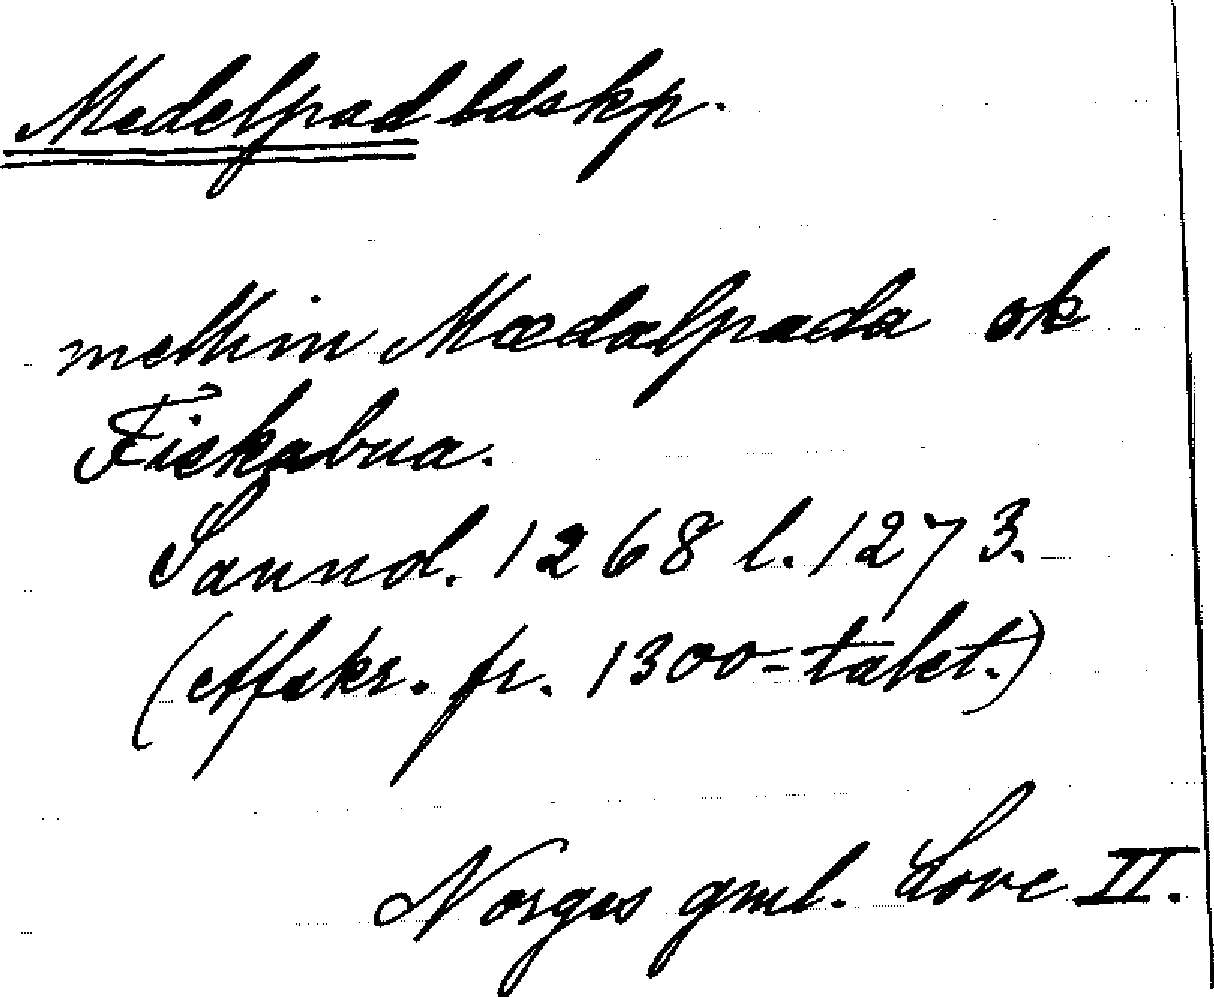 Medelpad ldskp.
mellim Mædalpada ok
Fiskabua.
Sannol. 1268 l. 1273.
(Afskr. fr. 1300-talet.)
Norges gml. Love II.